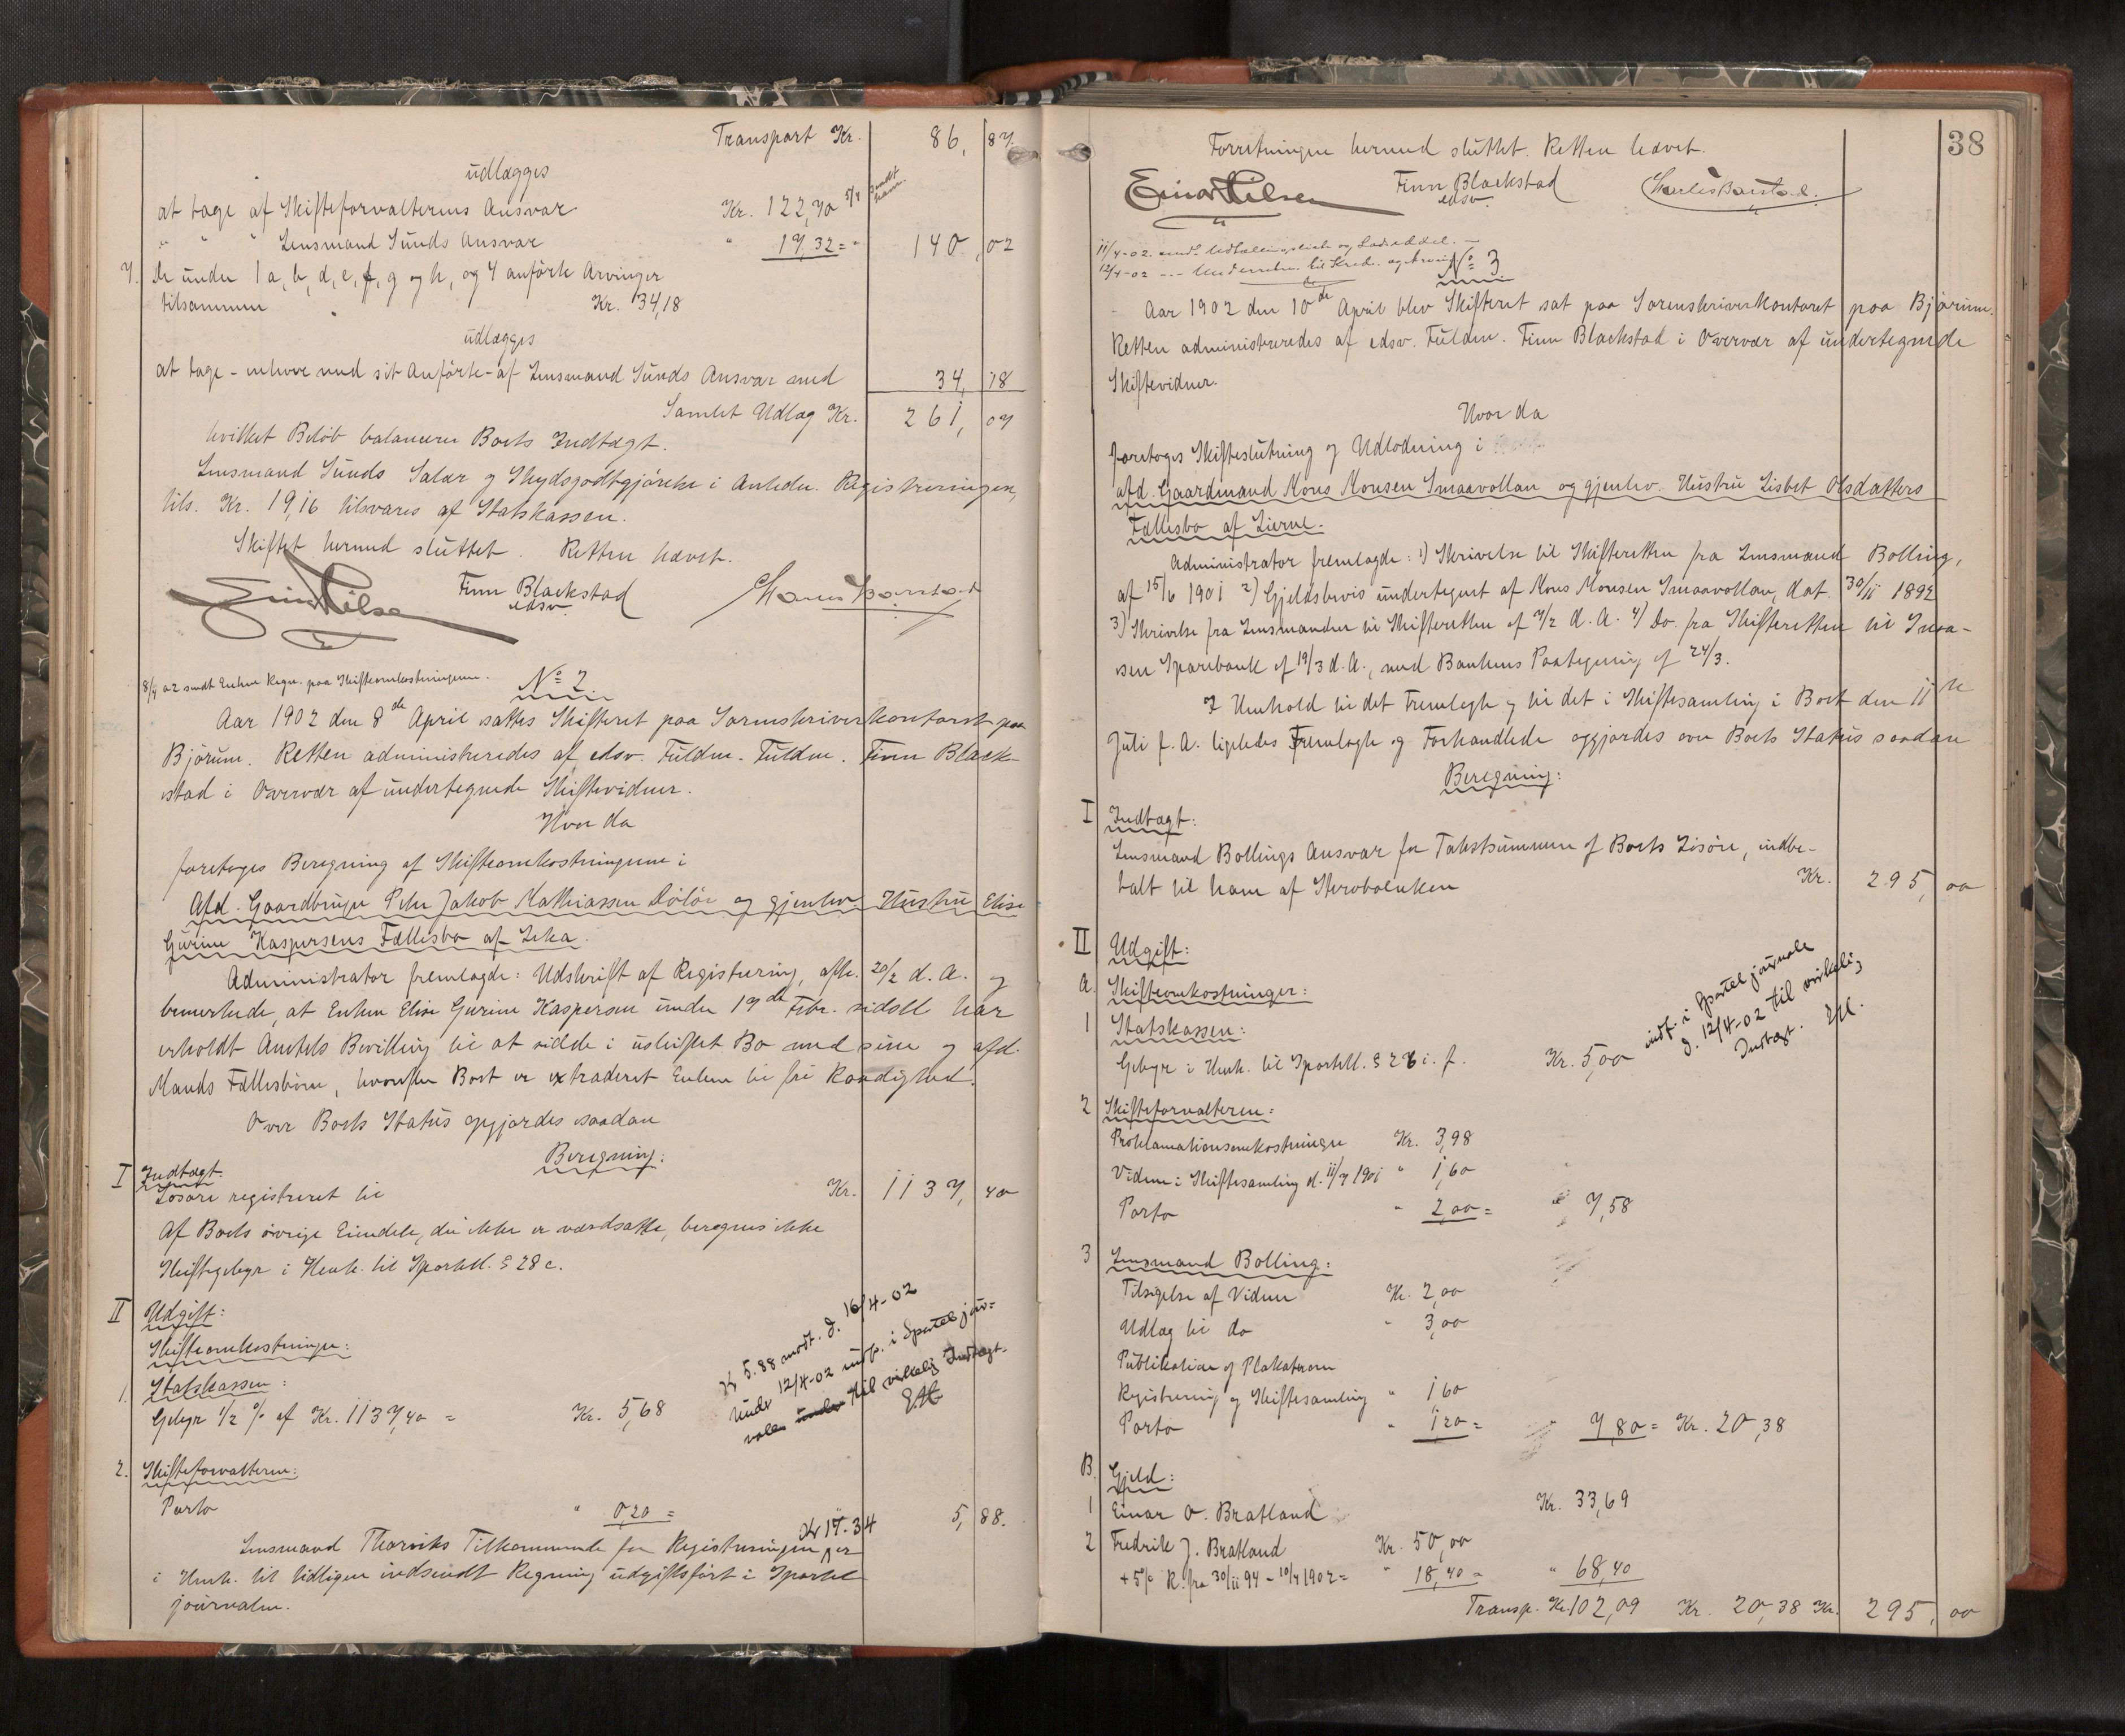 Transport Kr. 86, 87.
udlægges
at tage af Skifteforvalterens Ansvar Kr. 122,70 5/4 sendt ham.
" " " Lensmand Sunds Ansvar " 17,32 = " 140,02
7. De under 1 a, b, d, e, f, g og h, og 4 anførte Arvinger
tilsammen Kr. 34,18
udlægges
at tage - enhver med sit Anførte - af Lensmand Sunds Ansvar med 34, 18
Samlet Udlæg Kr. 261, 07
hvilket Beløb balancerer Boets Indtægt.
Lensmand Sunds Salær og Skydsgodtgjørelse i Anledn. Registreringen,
tils. Kr. 19,16 tilsvares af Statskassen.
Skiftet hermed sluttet. Retten hævet.
Finn Blackstad
edsv.
8/4 02 sendt Enken Regn. paa Skifteomkostningerne.
No 2
Aar 1902 den 8de April sattes Skifteret paa Sorenskriverkontoret paa
Bjørum. Retten administreredes af edsv. Fuldm. Fuldm. Finn Black-
stad i Overvær af undertegnede Skiftevidner.
Hvor da
foretoges Beregning af Skifteomkostningerne i
Afd. Gaardbruger Peter Jakob Mathiassen og gjenlev. Hustru Elise
Gurine Kaspersens Fællesbo af Leka.
Administrator fremlagde: Udskrift af Registrering, afh. 20/2 d. A. og
bemerkede, at Enken Elise Gurine Kaspersen under 19de Febr. sidstl. har
erholdt Amtets Bevilling til at sidde i uskiftet Bo med sine og afd.
Mands Fællesbørn, hvorefter Boet er extraderet Enken til fri Raadighed.
Over Boets Status opgjordes saadan
Beregning:
I Indtægt.
Løsøre registreret til Kr. 1137, 40
Af Boets øvrige Eiendele, der ikke er værdsatte, beregnes ikke
Skiftegebyr i Henh. til Sportell. § 28 c.
II Udgift:
Skifteomkostninger:
1. Statskassen:
Gebyr 1/2 % af Kr. 1137,40 = Kr. 5,68
Kr 5.88 modt. d. 16/4-02
Under 12/4-02 indf. i Sportel jour-
nalen under til virkelig Indtægt.
2. Skifteforvalteren:
Porto " 0,20 = 5, 88.
Kr 17.34
Lensmand Tharviks Tilkommende for Registreringen er
i Henh. til tidligere indsendt Regning udgiftsført i Sportel-
journalen.
38
Forretningen hermed sluttet. Retten hævet.
Einar Nilsen Finn Blackstad Charles Barstad.
edsv.
11/4-02 sendt Udtalelse og Ladseddel.
12/4-02 --- Underretn. til Kred. og Arving
No 3
Aar 1902 den 10de April blev Skifteret sat paa Sorenskriverkontoret paa Bjørum.
Retten administreredes af edsv. Fuldm. Finn Blackstad i Overvær af undertegnede
Skiftevidner.
Hvor da
foretoges Skifteslutning og Udlodning i
afd. Gaardmand Mons Monsen Smaavollan og gjenlev. Hustru Lisbet Olsdatters
Fællesbo af Lierne.
Administrator fremlagde: 1) Skrivelse til Skifteretten fra Lensmand Bolling,
af 15/6 1901 2) Gjeldsbevis undertegnet af Mons Monsen Smaavollan, dat. 30/11 1894
3) Skrivelse fra Lensmanden til Skifteretten af 7/2 d. A. 4) Do. fra Skifteretten til Snaa-
sen Sparebank af 19/3 d. A., med Bankens Paategning af 24/3.
I Henhold til det Fremlagte og til det i Skiftesamling i Boet den 11te
Juli f. A. ligeledes Fremlagte og Forhandlede opgjordes over Boets Status saadan
Beregning:
I Indtægt:
Lensmand Bollings Ansvar for Takstsummen af Boets Løsøre, indbe-
talt til ham af Kr. 295, 00
II Udgift:
A. Skifteomkostninger:
1 Statskassen:
Gebyr i Henh. til Sportell. § 28 i. f. Kr. 5,00
indt. i Sportel journale
d. 12/4-02 til virkelig
Indtægt.
2 Skifteforvalteren:
Proklamationsomkostninger Kr. 3,98
Vidner i Skiftesamling d. 11/7 1901 " 1,60
Porto " 2,00 = " 7,58
3 Lensmand Bolling:
Tilsigelse af Vidner Kr. 2,00
Udlæg til do " 3,00
Publikation af Plakaterom
Registrering og Skiftesamling " 1,60
Porto " 1,20 = " 7,80 = Kr. 20,38
B. Gjeld:
1 Einar O. Bratland Kr. 33,69
2 Fredrik J. Bratland Kr. 50,00
+ 5% R. fra 30/11 94 - 10/4 1902 = " 18,40 = " 68,40
Transp. Kr. 102,09 Kr. 20,38 Kr. 295, 00